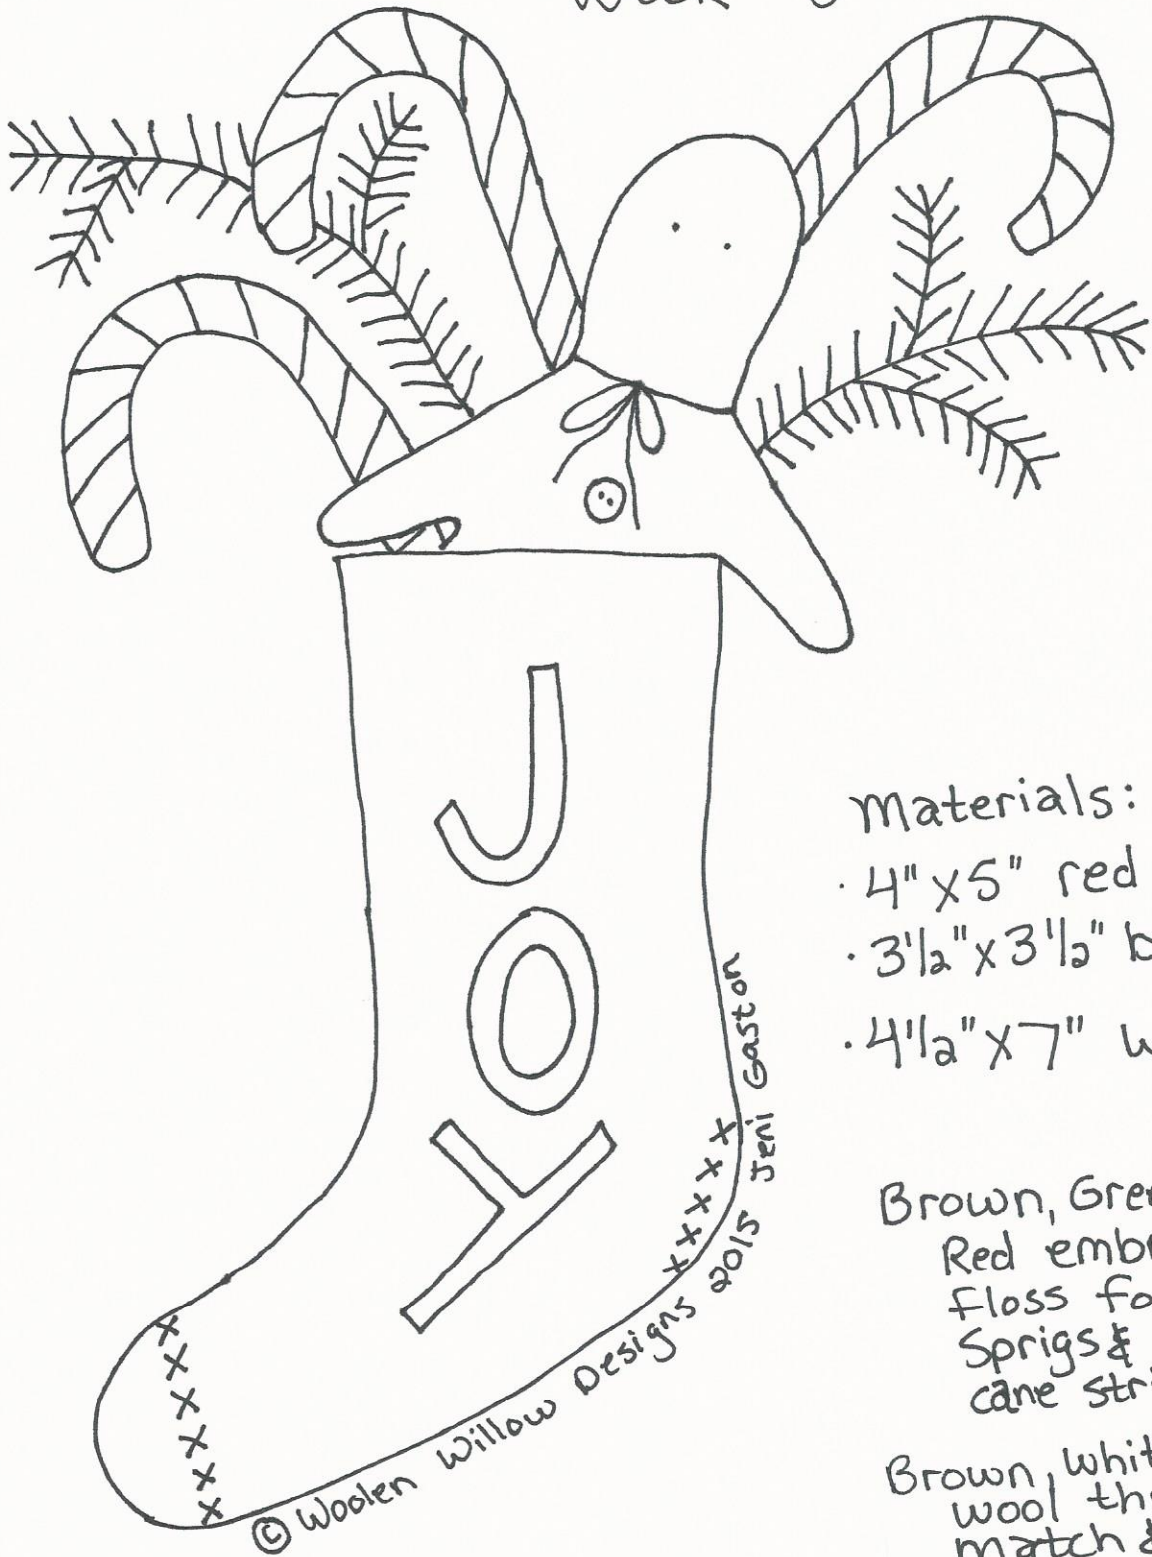 J
O
Y
© Woolen Willow Designs 2015 Jeni Gaston
Materials:
· 4" x 5" red
· 3 1/2" x 3 1/2" b
· 4 1/2" x 7" w
Brown, Gre
Red emb
Floss fo
Sprigs &
cane str
Brown, whit
wool th
match &